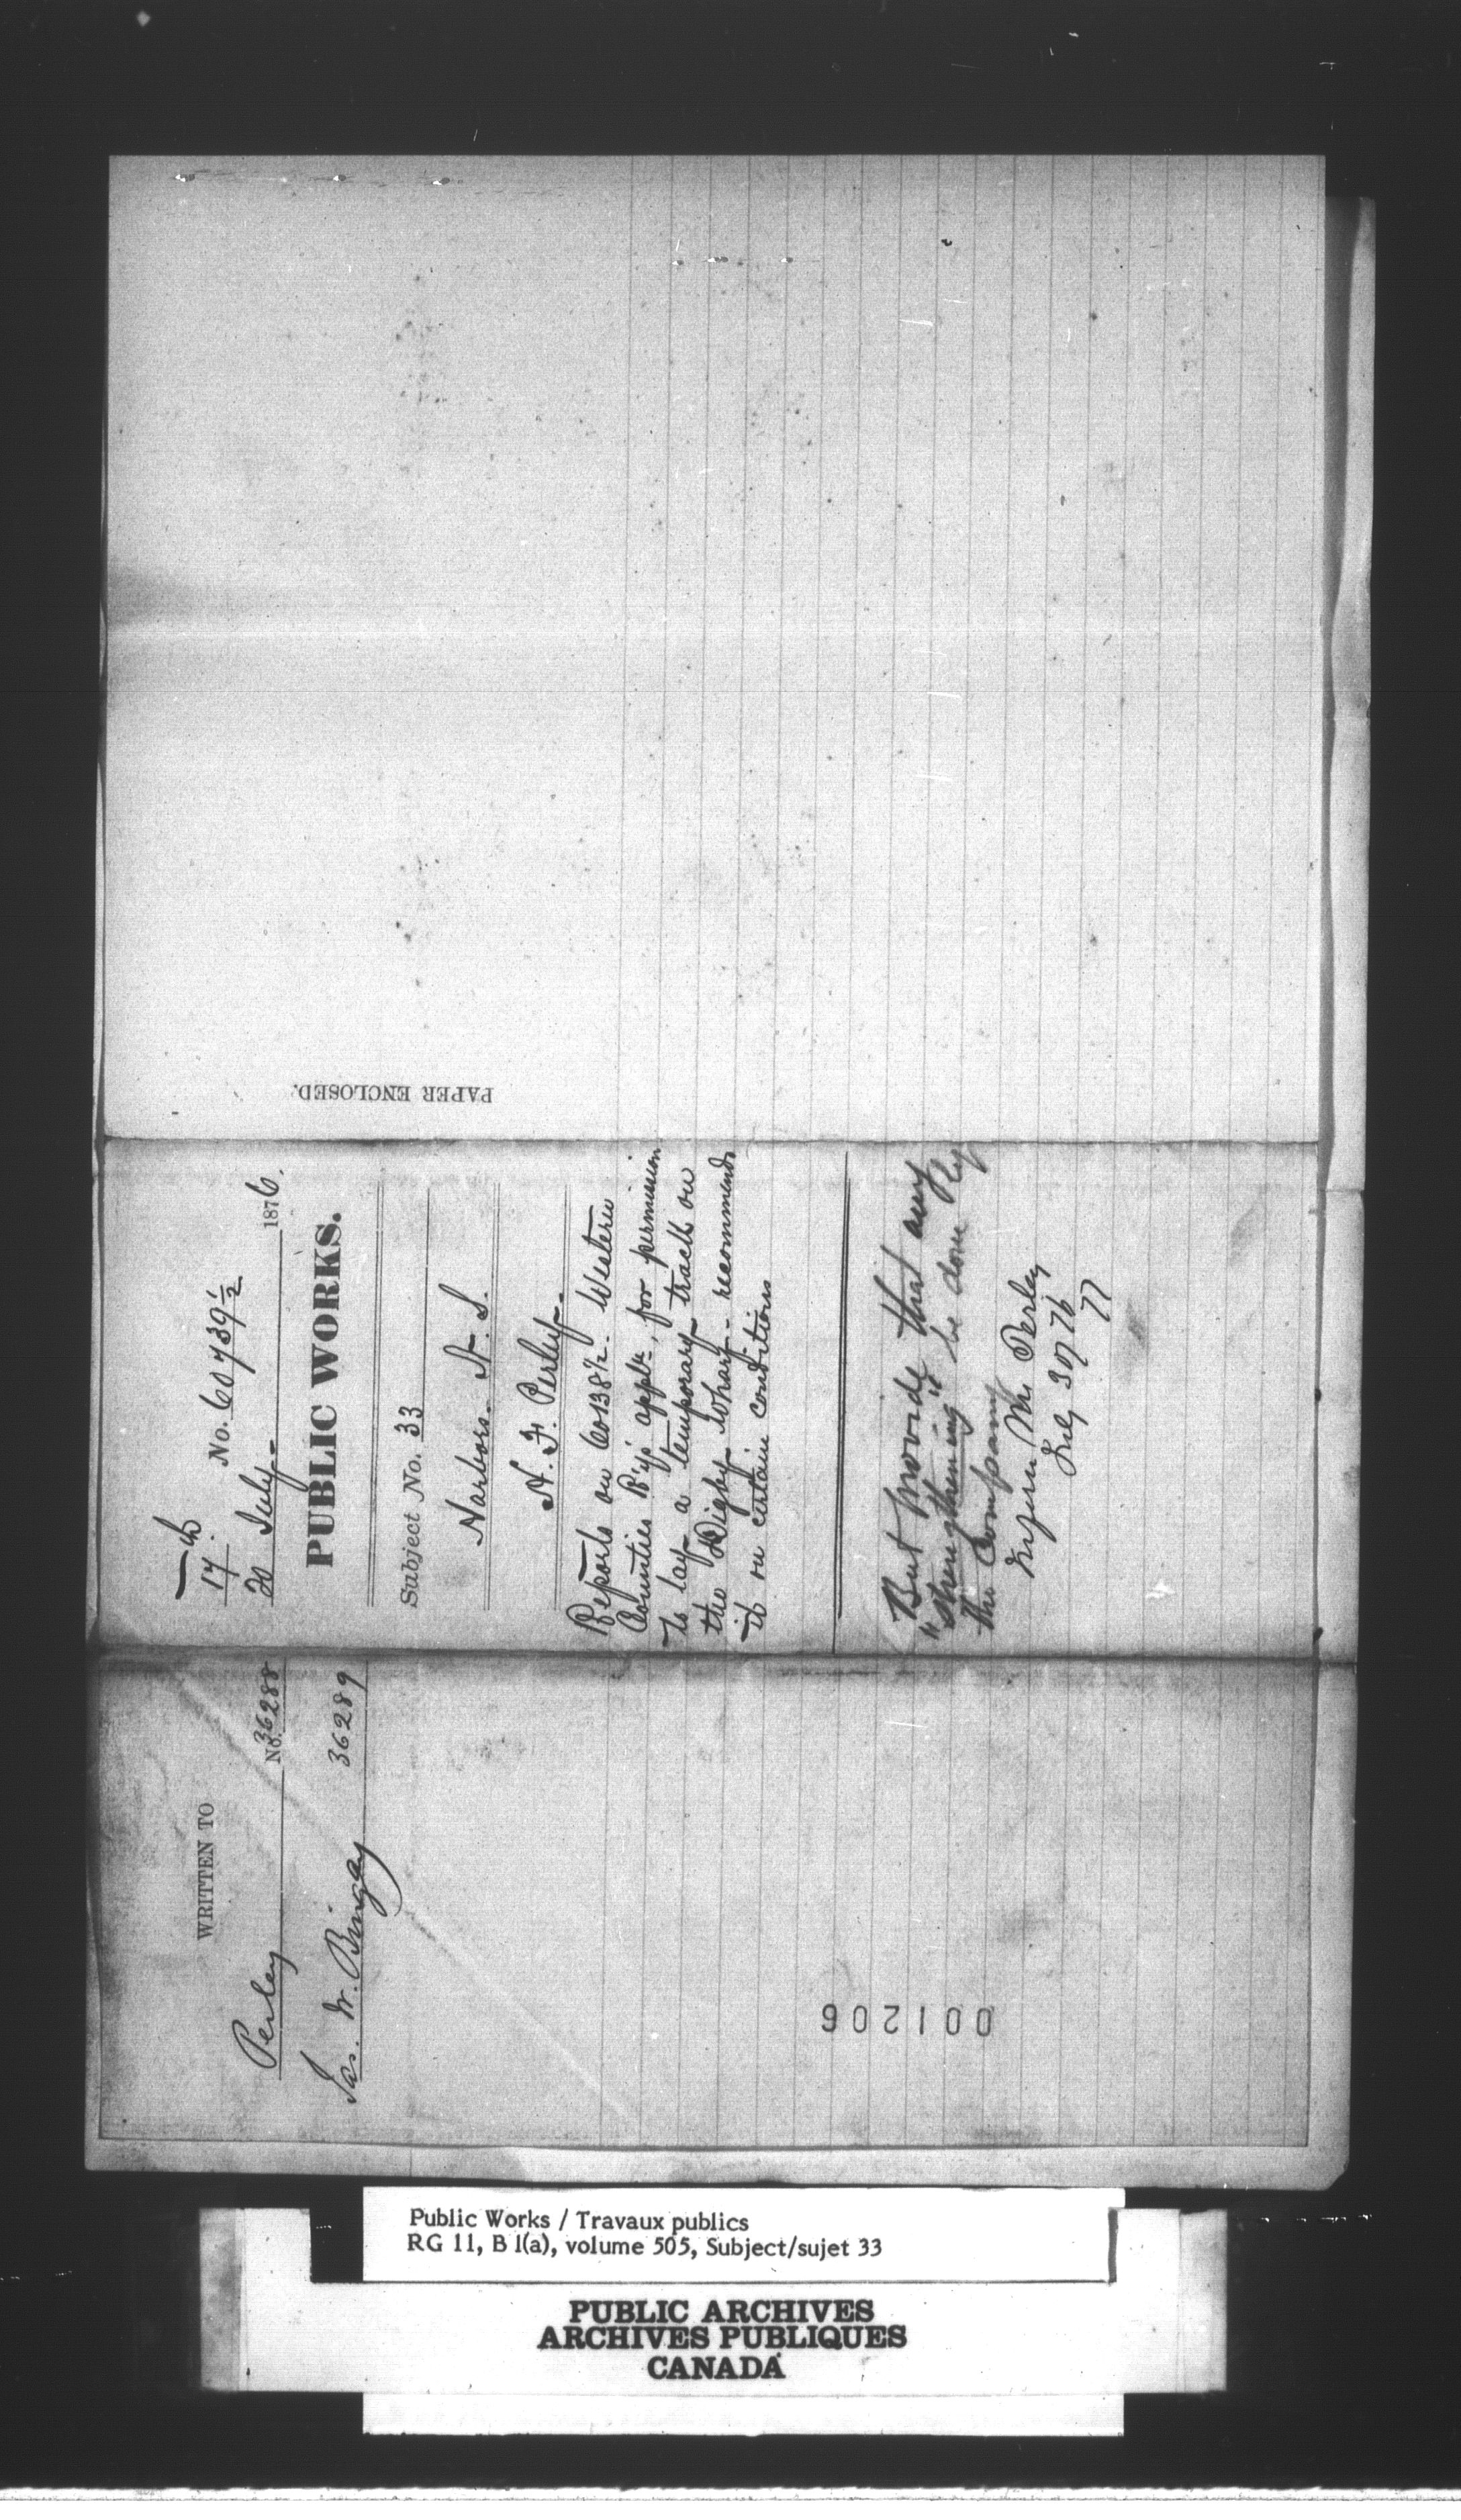 PAPER ENCLOSED.
17th
No. 60739½
20 July 1876.
PUBLIC WORKS.
Subject No. 33
Harbors. N. S.
H. F. Perley.
Reports on 60138½ - Western
Counties R'y's appln, for permission
to lay a temporary track on
the Digby Wharf - recommends
it on certain conditions
But provide that any
"strengthening" be done by
the Company
Mr. Perley
July 30/76
77
WRITTEN TO
Perley No. 36288
Jas. W. Bingay 36289
001206
Public Works / Travaux publics
RG 11, B 1(a), volume 505, Subject/sujet 33
PUBLIC ARCHIVES
ARCHIVES PUBLIQUES
CANADA